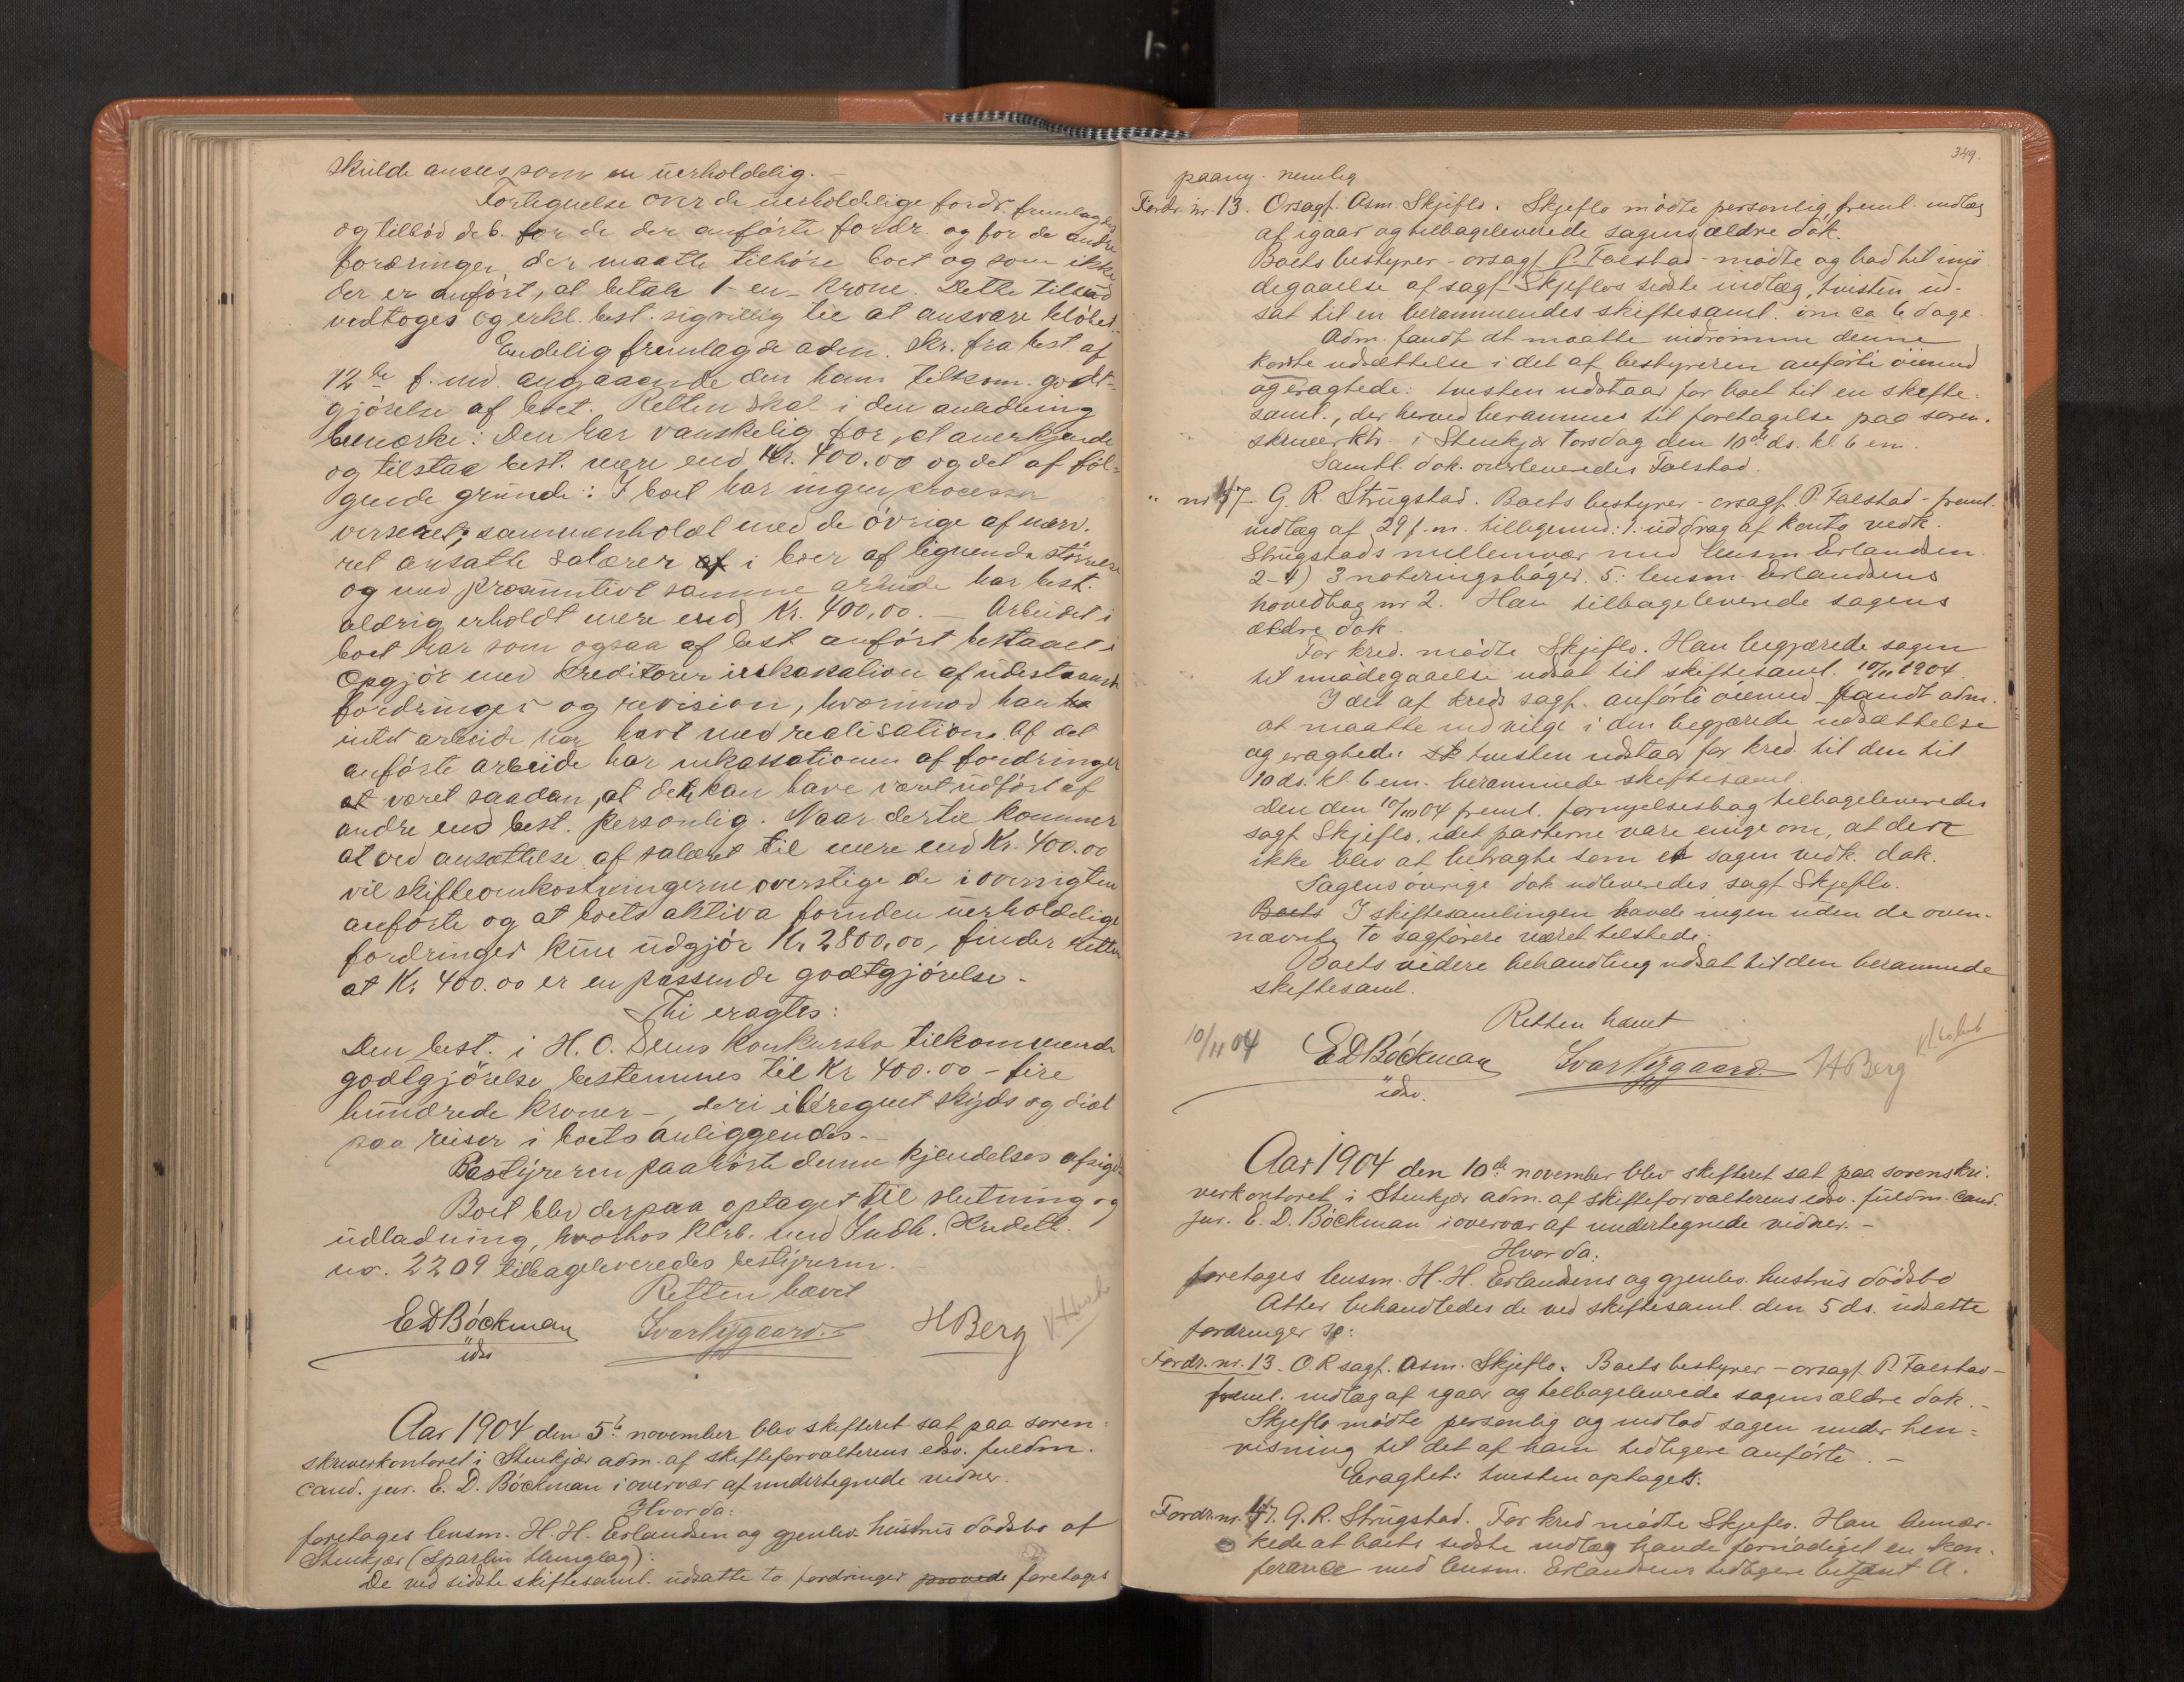 skulde ansees som en uerholdelig. -
Fortegnelse over de uerholdelige fordr. fremlagdes
og tilbød deb. for de der anførte fordr. og for de andre
fordringer, der maatte tilhøre boet og som ikke
der er anført, at betale 1 - en - krone. Dette tilbud
vedtoges og erkl. best. sig villig til at ansvare beløbet.
Endelig fremlagde adm. skr. fra best. af
12te f. md. angaaende den ham tilkom. godt-
gjørelse af boet. Retten skal i den anledning
bemærke: Den har vanskelig for, at anerkjende
og tilstaa best. mere end Kr. 400.00 og det af føl-
gende grunde: I boet har ingen processer
verseret; sammenholdt med de øvrige af nærv.
ret ansatte salærer i boer af lignende størrelse
og med præsumtivt samme arbeide har best.
aldrig erholdt mere end Kr. 400.00. - Arbeidet i
boet har som ogsaa af best. anført bestaaet i
Opgjør med kreditorer inkassation af udestaaende
fordringer og revision, hvorimod han
intet arbeide har havt med realisation. Af det
anførte arbeide har inkassationen af fordringer
været saadan, at det kan have været udført af
andre end best. personlig. Naar dertil kommer
at ved ansættelse af salæret til mere end Kr. 400.00
vil skifteomkostningerne overstige de i oversigten
anførte og at boets aktiva foruden uerholdelige
fordringer kun udgjør Kr 2800,00, finder retten
at Kr. 400.00 er en passende godtgjørelse -
Thi eragtes:
Den best. i H. O. Sems konkursbo tilkommende
godtgjørelse bestemmes til Kr 400.00 - fire
hundrede kroner -, deri iberegnet skyds og diæt
paa reiser i boets anliggender. -
Bestyreren paahørte denne kjendelses afsigelse
Boet blev derpaa optaget til slutning og
udlodning, hvorhos Klrb. med Indh. Kreditb.
no. 2209 tilbageleveredes bestyreren.
Retten hævet
EDBøckman Ivar Nygaard. H Berg
edsv
Aar 1904 den 5te november blev skifteret sat paa soren-
skriverkontoret i Stenkjær adm. af skifteforvalterens edsv. fuldm.
cand. jur. E. D. Bøckman i overvær af undertegnede vidner.
Hvor da:
foretages lensm. H. H. Erlandsen og gjenlev. hustrus dødsbo af
Stenkjær (Sparbu thinglag):
De ved sidste skiftesaml. udsatte to fordringer prøvede foretages
349.
paany. nemlig
Fordr. nr. 13. Orsagf. Asm. Skjeflo. Skjeflo mødte personlig, freml. indlæg
af igaar og tilbageleverede sagens ældre dok.
Boets bestyrer - orsagf. P. Falstad - mødte og bad til imø-
degaaelse af sagf. Skjeflos sidste indlæg, tvisten ud-
sat til en berammendes skiftesaml. om ca 6 dage.
Adm. fandt at maatte indrømme denne
korte udsættelse i det af bestyreren anførte øiemed
og eragtede: tvisten udstaar for boet til en skifte-
saml., der herved berammes til foretagelse paa soren-
skriverktr. i Stenkjær torsdag den 10de ds. kl. 6 em.
Samtl. dok. overleveredes Falstad.
" nr 47. G. R. Strugstad. Boets bestyrer - orsagf. P. Falstad - freml.
indlæg af 29 f. m. tilligemed: 1. uddrag af konto vedk.
Strugstads mellemvær med lensm. Erlandsen.
2-4) 3 noteringsbøger. 5: lensm. Erlandsens
hovedbog nr 2. Han tilbageleverede sagens
ældre dok.
For kred. mødte Skjeflo. Han begjærede sagen
til imødegaaelse udsat til skiftesaml. 10/11 1904.
I det af kreds sagf. anførte øiemed fandt adm.
at maatte indvilge i den begjærede udsættelse
og eragtede: tvisten udstaar for kred. til den til
10 ds. kl. 6 em. berammede skiftesaml.
Den den 10/10 04 freml. fornyelsesbog tilbageleveredes
sagf. Skjeflo, idet parterne vare enige om, at den
ikke blev at betragte som et sagen vedk. dok.
Sagens øvrige dok. udleveredes sagf. Skjeflo.
Boets I skiftesamlingen havde ingen uden de oven-
nævnte to sagførere været tilstede.
Boets videre behandling udsat til den berammede
skiftesaml.
Retten hævet
10/11 04 EDBøckman Ivar Nygaard. H Berg
edsv.
Aar 1904 den 10de november blev skifteret sat paa sorenskri-
verkontoret i Stenkjær adm. af skifteforvalterens edsv. fuldm. cand.
jur. E. D. Bøckman i overvær af undertegnede vidner. -
Hvor da:
foretages lensm. H. H. Erlandsens og gjenlev. hustrus dødsbo
Atter behandledes de ved skiftesaml. den 5 ds. udsatte
fordringer:
Fordr. nr. 13. O. R sagf. Asm. Skjeflo. Boets bestyrer - orsagf. P. Falstad -
freml. indlæg af igaar og tilbageleverede sagens ældre dok. -
Skjeflo mødte personlig og indlod sagen under hen-
visning til det af ham tidligere anførte. -
Eragtet: tvisten optages.
Fordr. nr. 47. G. R. Strugstad. For kred mødte Skjeflo. Han bemær-
kede at boets sidste indlæg havde fornødiget en kon-
ferance med lensm. Erlandsens tidligere betjent A.